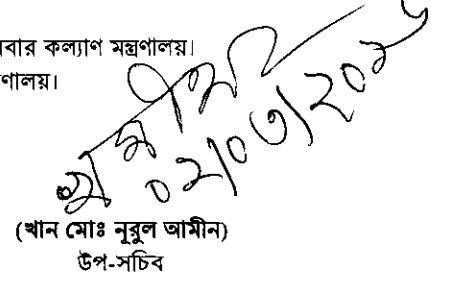 বার কল্যাণ মন্ত্রণালয়।
ণালয়।
০২/০৩/২০১৬
(খান মোঃ নূরুল আমীন)
উপ-সচিব